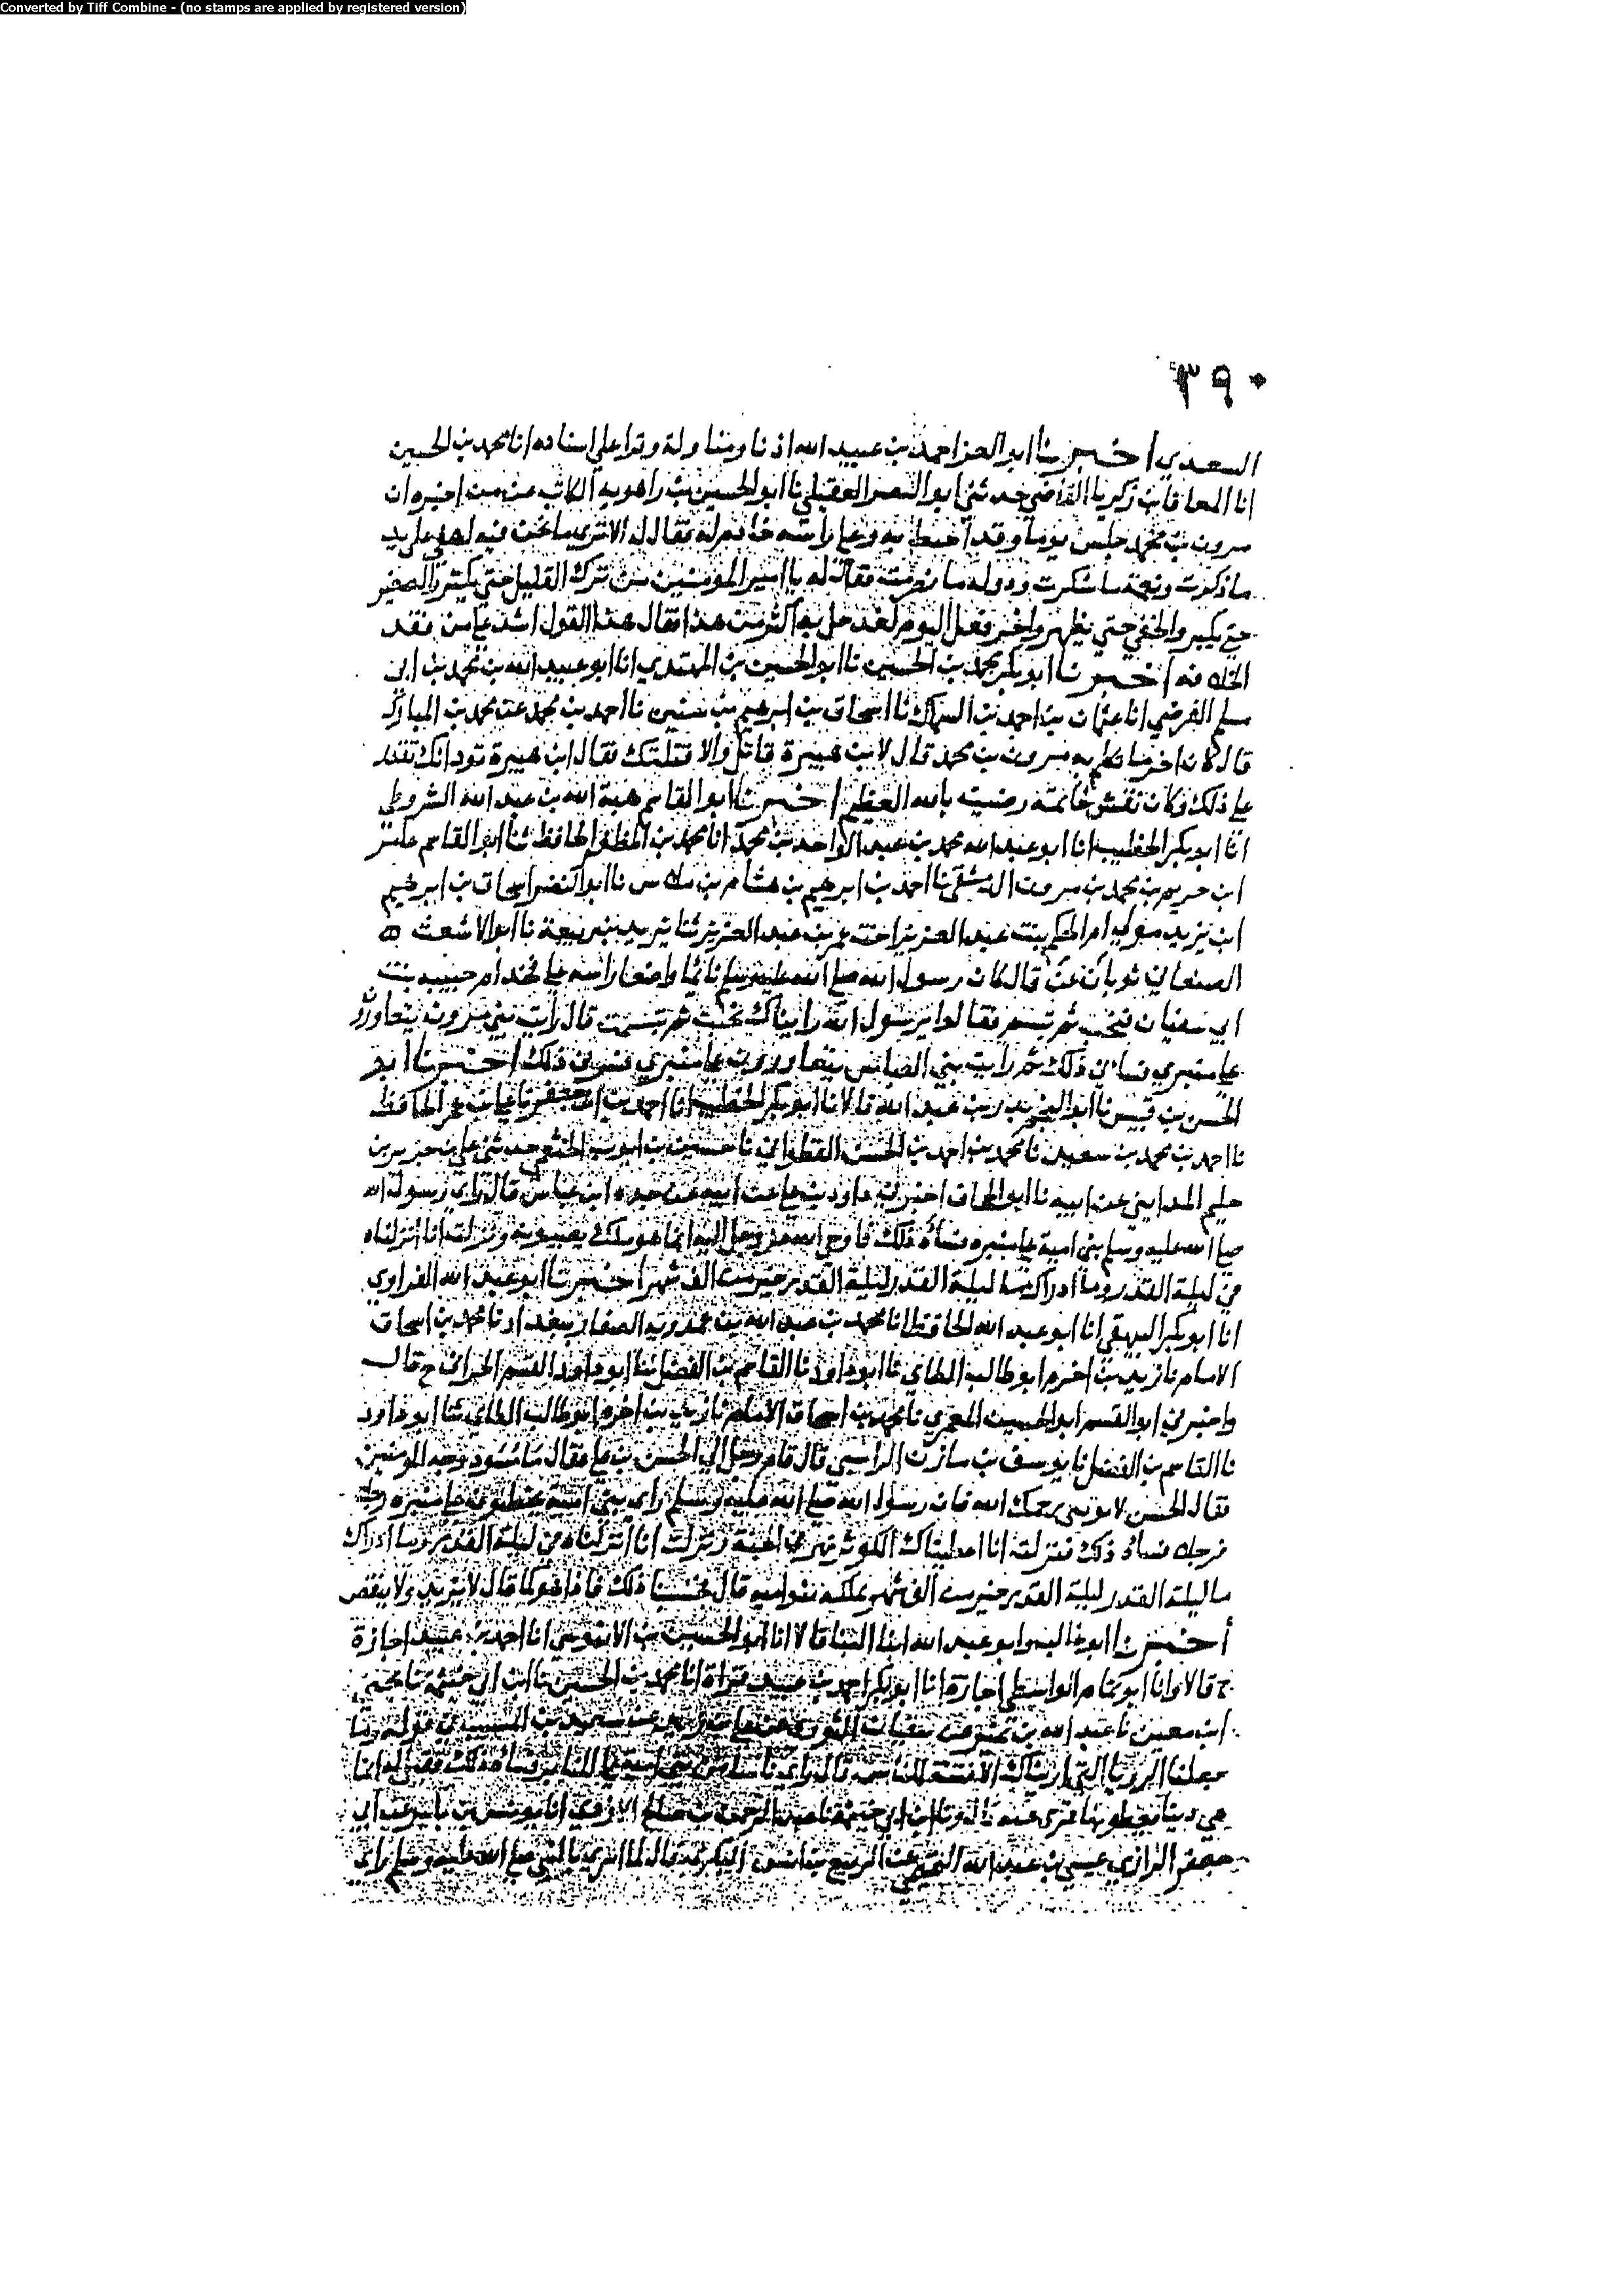 Converted by Tiff Combine - (no stamps are applied by registered version)
٣٩٠
السعدي اخبرنا ابو العز احمد بن عبيد الله اذنا ومناولة وقرا علي اسناده انا محمد بن الحسين
انا المعافا بن زكريا القاضي حدثني ابو النصر العقيلي نا ابو الحسين بن راهويه الكاتب عن من اخبره ان
مروان بن محمد جلس يوما وقد احيط به وعلى راسه خادم له فقال له الا ترى ما نحن فيه لهفي على يد
ما ذكرت ونعمة ما شكرت ودولة ما نصرت فقال له يا امير المومنين من ترك القليل حتى يكثر والصغير
حتى يكبر والخفي حتى يظهر واخر فعل اليوم لغد حل به اكثر من هذا فقال هذا القول اشد علي من فقد
الخلافة اخبرنا ابو بكر محمد بن الحسين نا ابو الحسين بن المهتدي انا ابو عبيد الله بن محمد بن ابي
مسلم الفرضي انا عثمان بن احمد بن السماك نا اسحاق بن ابرهيم بن سنين نا احمد بن محمد عن محمد بن المبارك
قال كان اخر ما تكلم به مروان بن محمد قال لابن هبيرة قاتل والا قتلتك فقال ابن هبيرة تود انك تقدر
على ذلك وكان نقش خاتمه رضيت بالله العظيم اخبرنا ابو القاسم هبة الله بن عبد الله الشروطي
انا ابو بكر الخطيب انا ابو عبد الله محمد بن عبد الواحد بن محمد انا محمد بن المظفر الحافظ ثنا ابو القاسم عامر
ابن خريم بن محمد بن مروان الدمشقي نا احمد بن ابرهيم بن هشام بن ملاس نا ابو النضر اسحاق بن ابرهيم
ابن يزيد مولى ام الحكم بنت عبد العزيز اخت عمر بن عبد العزيز ثنا يزيد بن ربيعة نا ابو الاشعث
الصنعاني ثوبان قال كان رسول الله صلى الله عليه وسلم نائما واضعا راسه على فخذ ام حبيبه بنت
ابي سفيان فنحب ثم تبسم فقالوا يرسول الله رايناك نحبت ثم تبسمت قال رايت بني مروان يتعاورون
على منبري فساني ذلك ثم رايت بني العباس يتعاورون على منبري فسرني ذلك اخبرنا ابو
الحسن بن قبيس نا ابو النجم بدر بن عبد الله قالا نا ابو بكر الخطيب انا احمد بن جعفر نا علي بن عمر الحافظ
نا احمد بن محمد بن سعيد نا محمد بن احمد بن الحسن القطواني نا حسين بن ايوب الخثعمي حدثني علي بن حرير بن
حليم المدايني عن ابيه نا ابو الجحاف اخبرني داود بن علي عن ابيه عن جده ابن عباس قال راى رسول الله
صلى الله عليه وسلم بني امية على منبره فساه ذلك فاوحى الله عز وجل اليه انما هو ملك يصيبونه ونزلت انا انزلناه
في ليلة القدر وما ادراك ما ليلة القدر ليلة القدر خير من الف شهر اخبرنا ابو عبد الله الفراوي
انا ابو بكر البيهقي انا ابو عبد الله الحافظ انا محمد بن عبد الله بن عمرويه الصفار ببغداد نا محمد بن اسحاق
الامام نا زيد بن اخزم ابو طالب الطاي نا ابو داود نا القاسم بن الفضل ثنا ابو داود القسم الحراني ح قال
واخبرني ابو القسم ابو الحسين المعمري نا محمد بن اسحاق الامام نا زيد بن اخزم ابو طالب الطاي ثنا ابو داود
نا القاسم بن الفضل نا يوسف بن مازن الراسبي قال قام رجل الى الحسن بن علي فقال يا مسود وجه المومنين
فقال الحسن لا تونبني يرحمك الله فان رسول الله صلى الله عليه وسلم راى بني امية يخطبون على منبره رجلا
فرجلا فساه ذلك فنزلت انا اعطيناك الكوثر نهر في الجنة ونزلت انا انزلناه في ليلة القدر وما ادراك
ما ليلة القدر ليلة القدر خير من الف شهر تملكه بنو اميه قال فحسبنا ذلك فاذا هو كما قال لا يزيد ولا ينقص
اخبرنا ابو غالب وابو عبد الله ابنا البنا قالا انا ابو الحسين بن الابنوسي انا احمد بن عبيد اجازة
ح قالا وانا ابو تمام الواسطي اجازة انا ابو بكر احمد بن عبيد قراة انا محمد بن الحسين نا ابن ابي خيثمة نا يحيى
ابن معين نا عبد الله بن نمير عن سفيان الثوري عن علي بن زيد عن سعيد بن المسيب في قوله وما
جعلنا الرويا التي اريناك الا فتنة للناس قال راى ناسا من بني امية على المنابر فساه ذلك فقيل له انما
هي دنيا يعطونها فسري عنه قال ونا ابن ابي خيثمة نا عبد الرحمن بن صالح الازدي انا يونس بن بكير عن ابي
جعفر الرازي عيسى بن عبد الله التميمي عن الربيع بن انس البكري قال لما اسري بالنبي صلى الله عليه وسلم راى